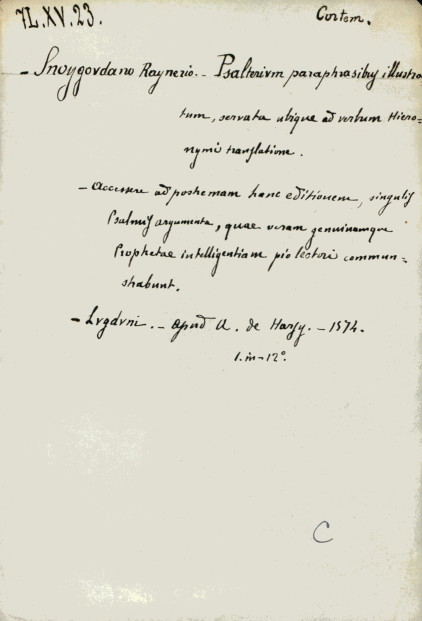 7L.XV.23.
Cortom.
- Snoygovdano Raynerio. - Psalterivm paraphrasibus illustra
tum, servata ubique ad verbum Hiero-
nymi translatione.
- Accessere ad postremam hanc editionem, singulis
Psalmis argumenta, quae veram genuinamque
Prophetae intelligentiam pio lectori commun-
strabunt.
- Lvgdvni. - apud A. de Harsy. - 1574.
1. in-12º.
C